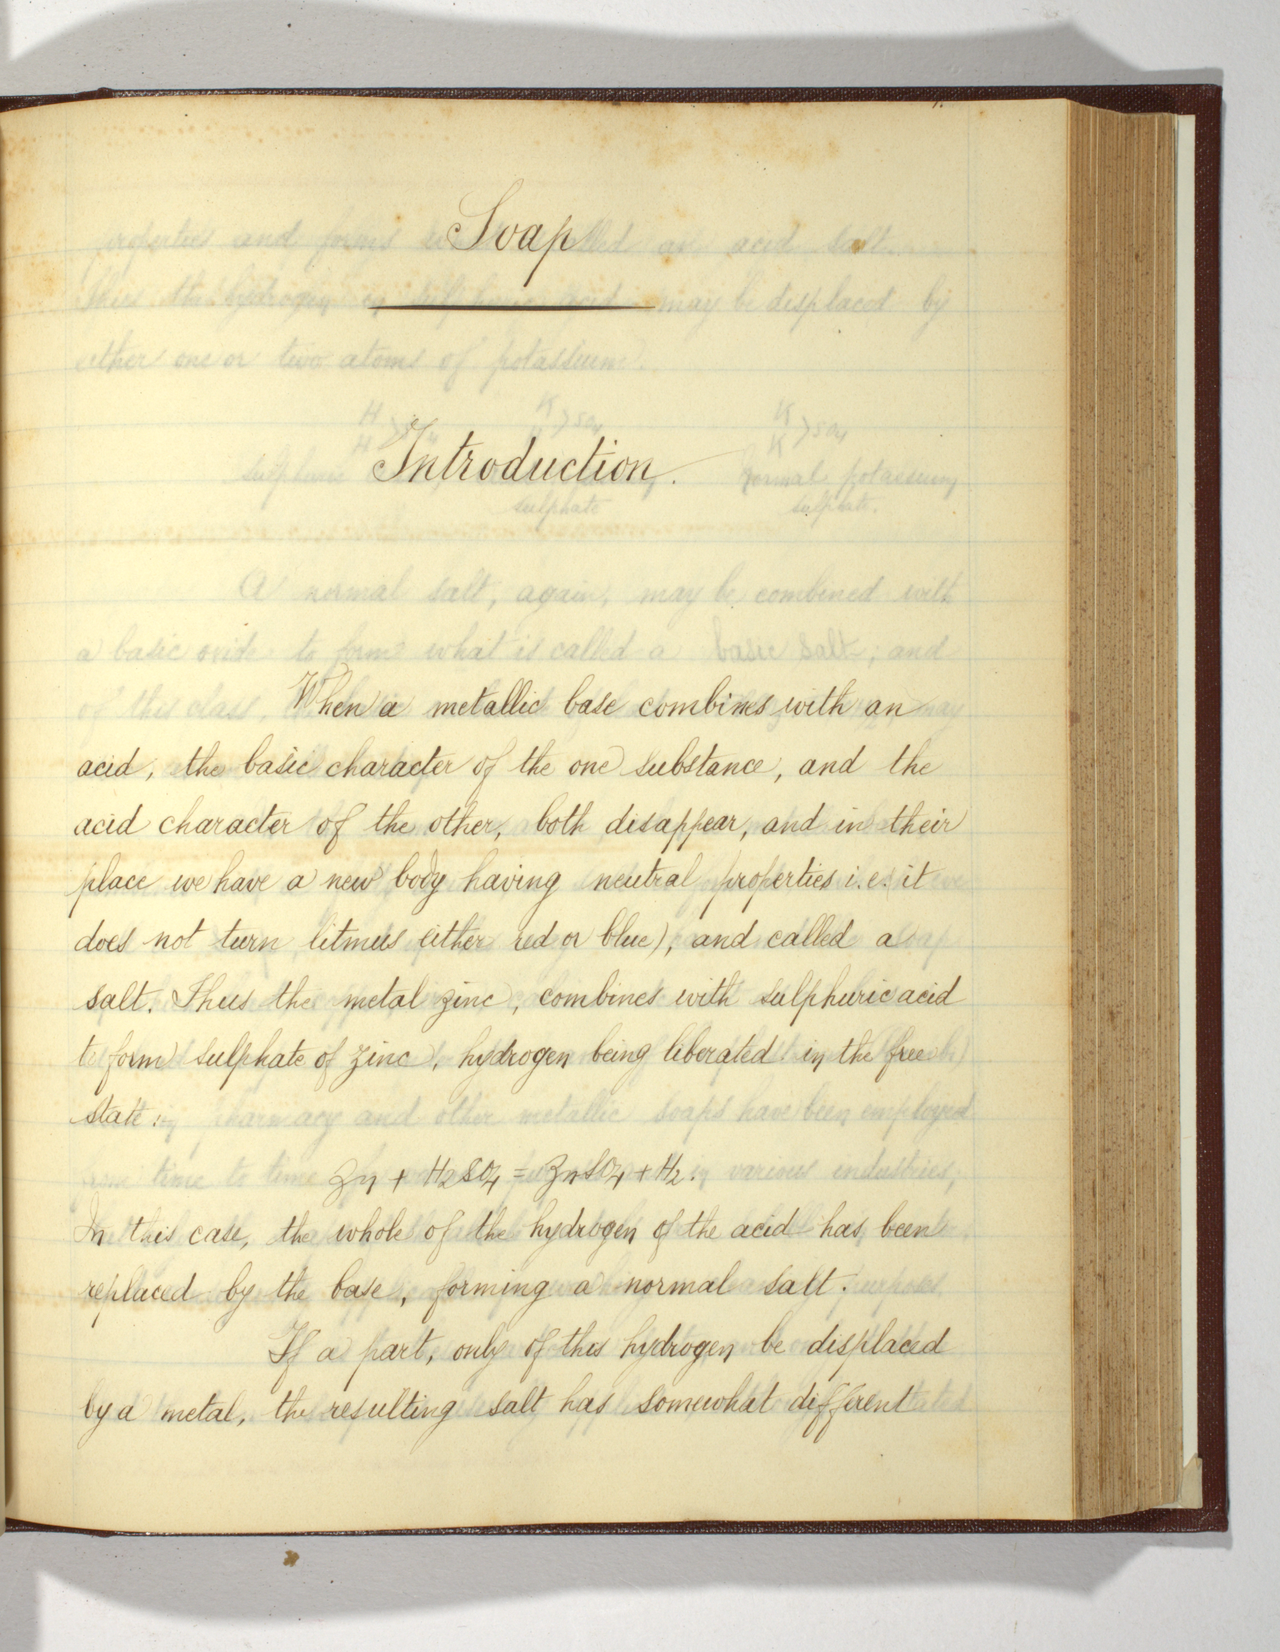 1.
Soap
Introduction.
When a metallic base combines with an
acid, the basic character of the one substance, and the
acid character of the other, both disappear, and in their
place we have a new body having neutral properties i.e. it
does not turn litmus either red or blue), and called a
salt. Thus the metal zinc, combines with sulphuric acid
to form sulphate of zinc, hydrogen being liberated in the free
state :
Zn + H2SO4 = ZnSO4 + H2.
In this case, the whole of the hydrogen of the acid has been
replaced by the base, forming a normal salt.
If a part, only of this hydrogen be displaced
by a metal, the resulting salt has somewhat different